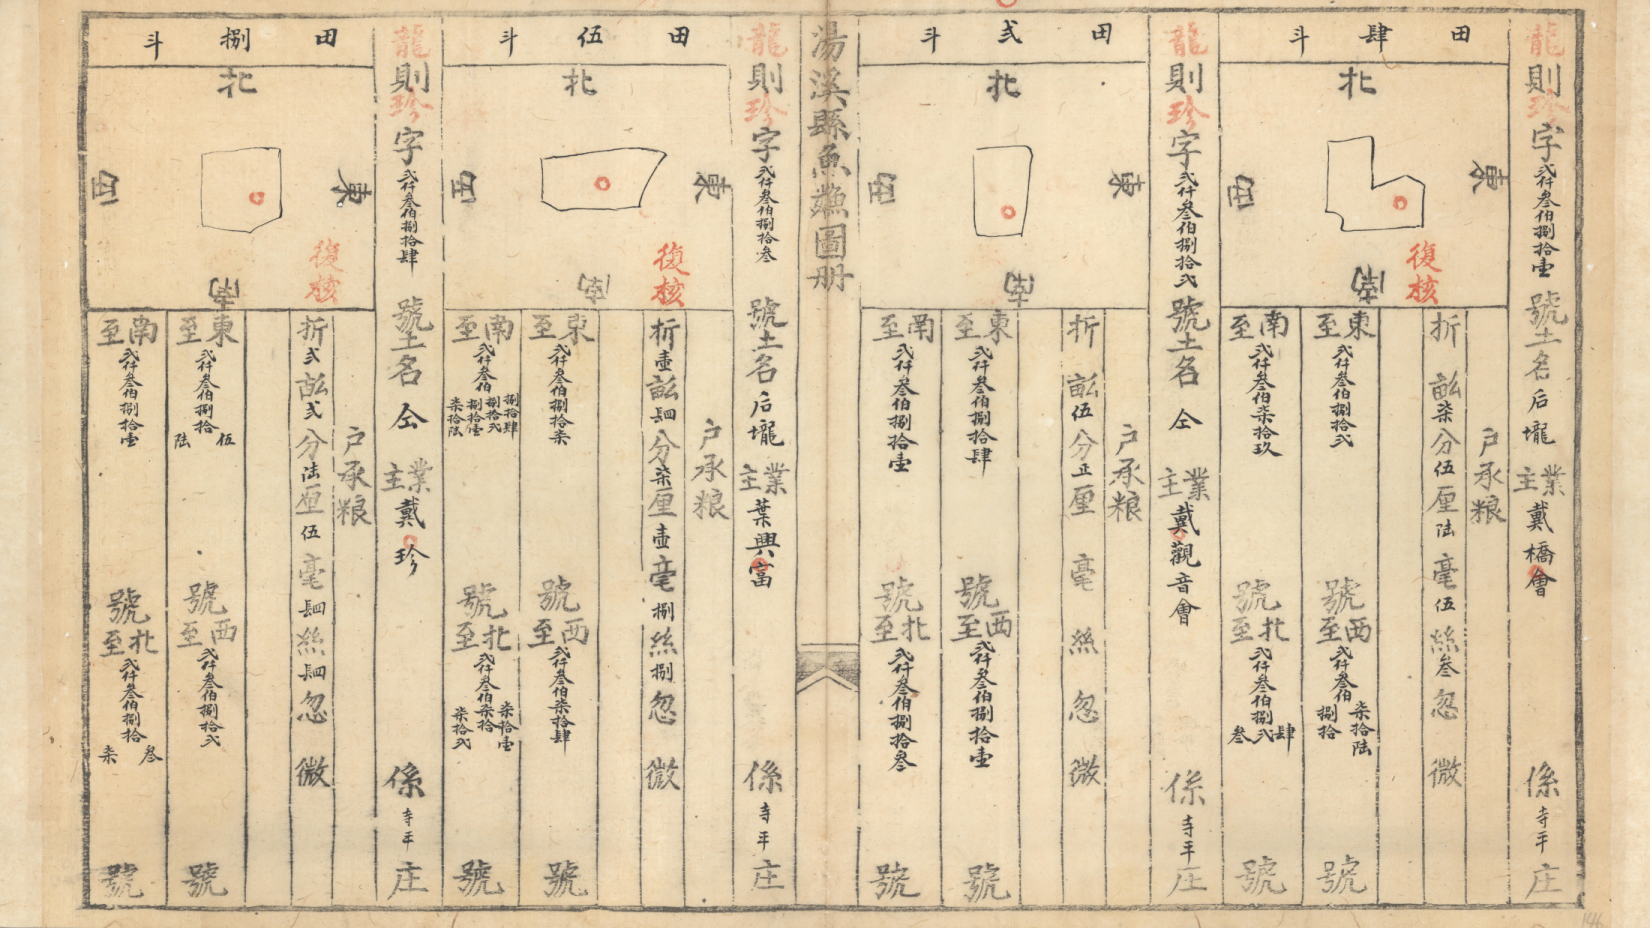 龍則珍字弍仟叁伯捌拾壹號土名后壠業主戴橋會係寺平庄
田肆斗
北
東
西
南
復核
户承粮
折畝柒分伍厘陆毫伍絲叁忽微
東至弍仟叁伯捌拾弍號
西至弍仟叁伯柒拾陆捌拾號
南至弍仟叁伯柒拾玖號
北至弍仟叁伯捌肆弍叁號
龍則珍字弍仟叁伯捌拾弍號土名仝業主戴觀音會係寺平庄
田弍斗
北
東
西
南
户承粮
折畝伍分正厘毫絲忽微
東至弍仟叁伯捌拾肆號
西至弍仟叁伯捌拾壹號
南至弍仟叁伯捌拾壹號
北至弍仟叁伯捌拾叁號
湯溪縣魚鱗圖册
龍則珍字弍仟叁伯捌拾叁號土名后壠業主葉興富係寺平庄
田伍斗
北
東
西
南
復核
户承粮
折壹畝肆分柒厘壹毫捌絲捌忽微
東至弍仟叁伯捌拾柒號
西至弍仟叁伯柒拾肆號
南至弍仟叁伯捌拾肆捌拾弍捌拾壹柒拾陆號
北至弍仟叁伯柒拾壹柒拾柒拾弍號
龍則珍字弍仟叁伯捌拾肆號土名仝業主戴珍係寺平庄
田捌斗
北
東
西
南
復核
户承粮
折弍畝弍分陆厘伍毫肆絲肆忽微
東至弍仟叁伯捌拾伍陆號
西至弍仟叁伯捌拾弍號
南至弍仟叁伯捌拾壹號
北至弍仟叁伯捌拾叁柒號
146